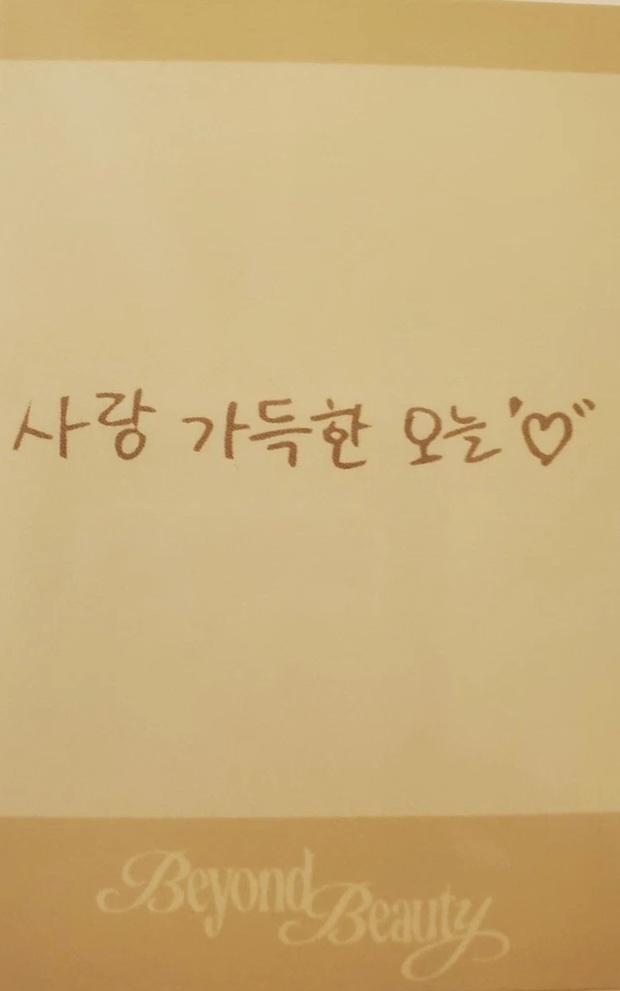 사랑 가득한 오늘'♡"
Beyond
Beauty